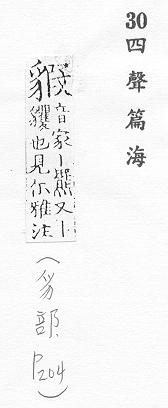 30四聲篇海
貑
音家丨羆又丨
貜也見尔雅注
(豸部, P204)